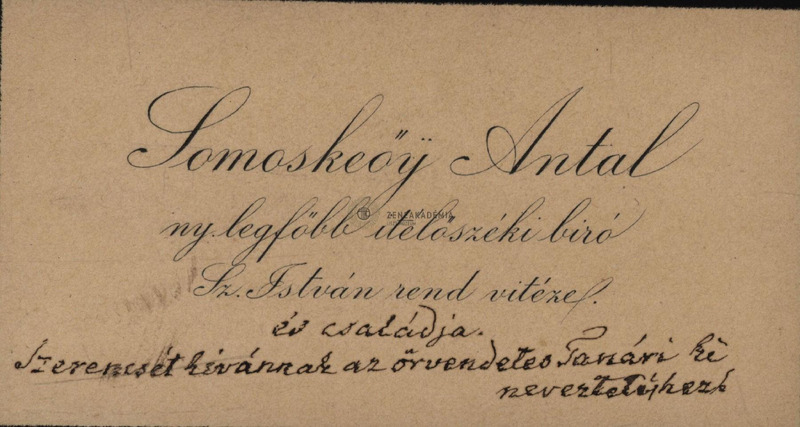 Somoskeőÿ Antal
ZENEAKADÉMIA
ny. legfőbb itélőszéki biró
Sz. István rend vitéze.
és családja.
Szerencsét kivánnak az örvendetes Tanári ki
neveztetéshez!